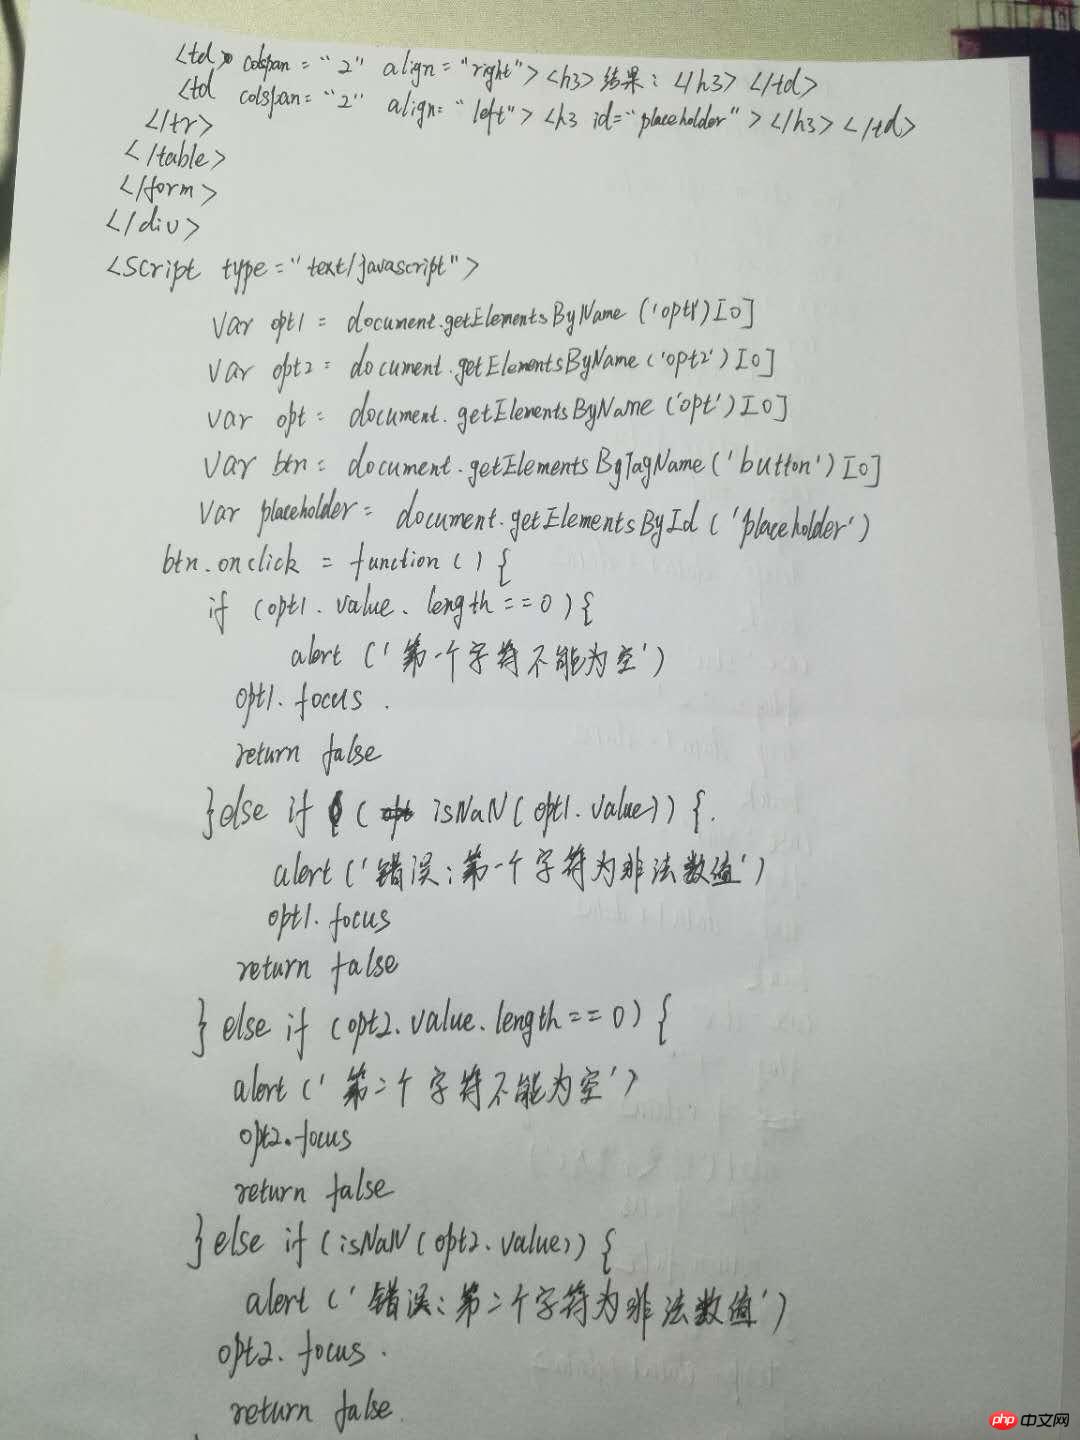 <td> colspan = "2" align="right"> <h3> 结果: </h3> </td>
<td colspan="2" align="left"> <h3 id="placeholder"> </h3> </td>
</tr>
</table>
</form>
</div>
<script type="text/javascript">
var opt1 = document.getElementsByName('opt1')[0]
var opt2 = document.getElementsByName('opt2')[0]
var opt = document.getElementsByName('opt')[0]
var btn = document.getElementsByTagName('button')[0]
var placeholder = document.getElementsById('placeholder')
btn.onclick = function () {
if (opt1.value.length==0){
alert ('第一个字符不能为空')
opt1.focus.
return false
}else if ( isNaN(opt1.value)) {.
alert ('错误:第一个字符为非法数值')
opt1.focus
return false
} else if (opt2.value.length==0) {
alert (' 第二个字符不能为空')
opt2.focus
return false
} else if (isNaN(opt2.value)) {
alert ('错误:第二个字符为非法数值')
opt2.focus.
return false.
php 中文网